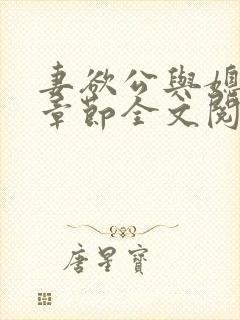 妻欲公與媳
章節全文閱
唐星寶